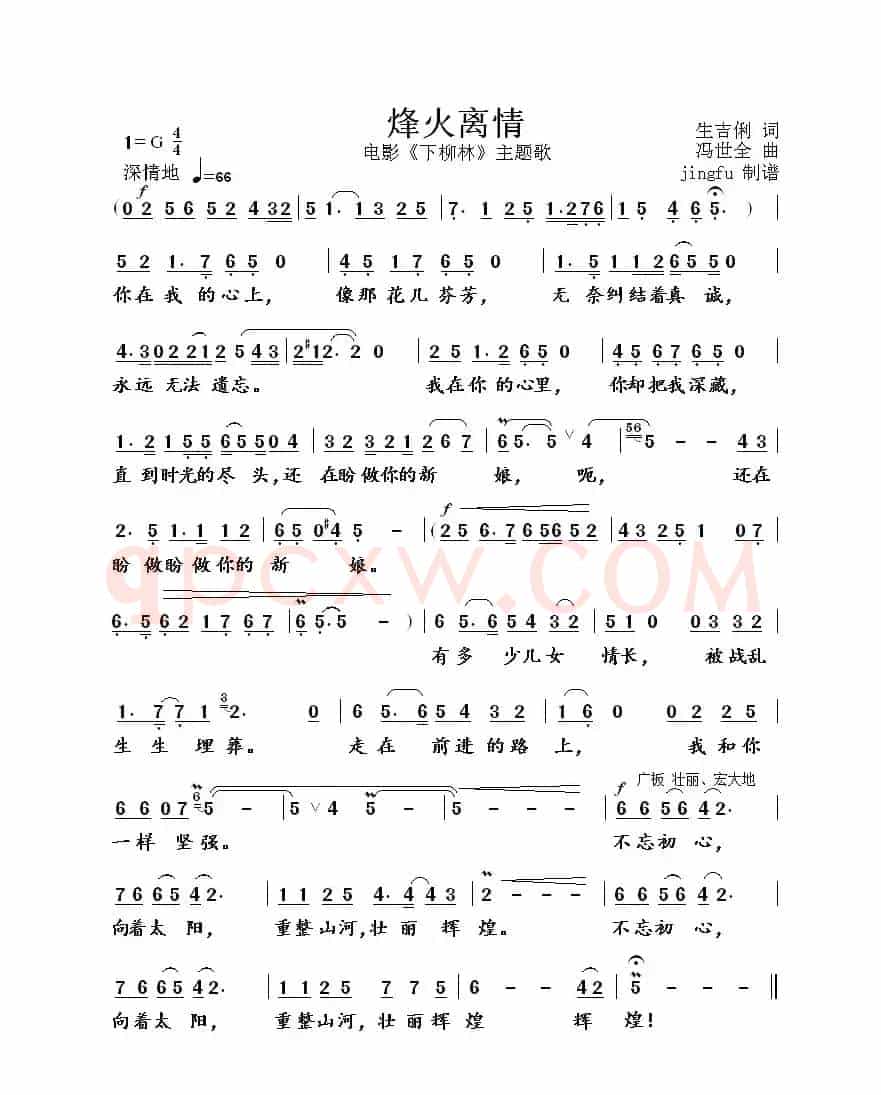 烽火离情
1=G 4/4
生吉俐 词
电影《下柳林》主题歌
冯世全 曲
深情地 ♩=66
jingfu 制谱
f
(0 2 5 6 5 2 4 3 2 | 5 1· 1 3 2 5 | 7· 1 2 5 1·2 7 6 | 1 5 4 6 5· ) |
5 2 1· 7 6 5 0 | 4 5 1 7 6 5 0 | 1· 5 1 1 2 6 5 5 0 |
你在我 的心上, 像那花儿芬芳, 无 奈纠结着真 诚,
4·3 0 2 2 1 2 5 4 3 | 2 #1 2· 2 0 | 2 5 1·2 6 5 0 | 4 5 6 7 6 5 0 |
永远 无法 遗忘。 我在你 的心里, 你却把我深藏,
1·2 1 5 5 6 5 5 0 4 | 3 2 3 2 1 2 6 7 | 6 5· 5 ∨ 4 | 56 5 - - 4 3 |
直 到时光的尽 头,还 在盼做你的新 娘, 呃, 还在
2· 5 1·1 1 2 | 6 5 0 #4 5 - | f (2 5 6·7 6 5 6 5 2 | 4 3 2 5 1 0 7 |
盼 做盼 做你的 新 娘。
qpcxw.COM
6·5 6 2 1 7 6 7 | 6 5·5 - ) | 6 5·6 5 4 3 2 | 5 1 0 0 3 3 2 |
有多 少儿女 情长, 被战乱
1· 7 7 1 3 2· 0 | 6 5· 6 5 4 3 2 | 1 6 0 0 2 2 5 |
生 生 埋 葬。 走在 前进的路 上, 我和你
广板 壮丽、宏大地
6 6 0 7 6 5 - - | 5 ∨ 4 5 - | 5 - - - | f 6 6 5 6 4 2· |
一样 坚强。 不忘初 心,
7 6 6 5 4 2· | 1 1 2 5 4· 4 4 3 | 2 - - - | 6 6 5 6 4 2· |
向着太 阳, 重整山河,壮 丽 辉 煌。 不忘初 心,
7 6 6 5 4 2· | 1 1 2 5 7 7 5 | 6 - - 4 2 | 5 - - - ‖
向着太 阳, 重整山河,壮 丽辉 煌 辉 煌!